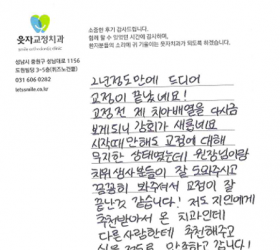 웃자교정치과
소중한 후기 감사드립니다.
함께 할 수 있었던 시간에 감사하며,
환자분들의 소리에 귀 기울이는 웃자치과가 되도록 하겠습니다.
성남시 중원구 성남대로 1156
도원빌딩 3~5층(위즈노건물)
031 606 0282
letssmile.co.kr
2년정도만에 드디어
교정이 끝났네요!
교정전 제 치아배열을 다시금
보게되니 감회가 새롭네요
시작때만해도 교정에 대해
무지한 상태였는데 원장님이랑
치위생사분들이 잘 도와주시고
꼼꼼히 봐주셔서 교정이 잘
끝난것 같습니다! 저도 지인에게
추천받아서 온 치과인데
다른 사람한테 추천해주고
싶을 정도로 만족하고 갑니다!